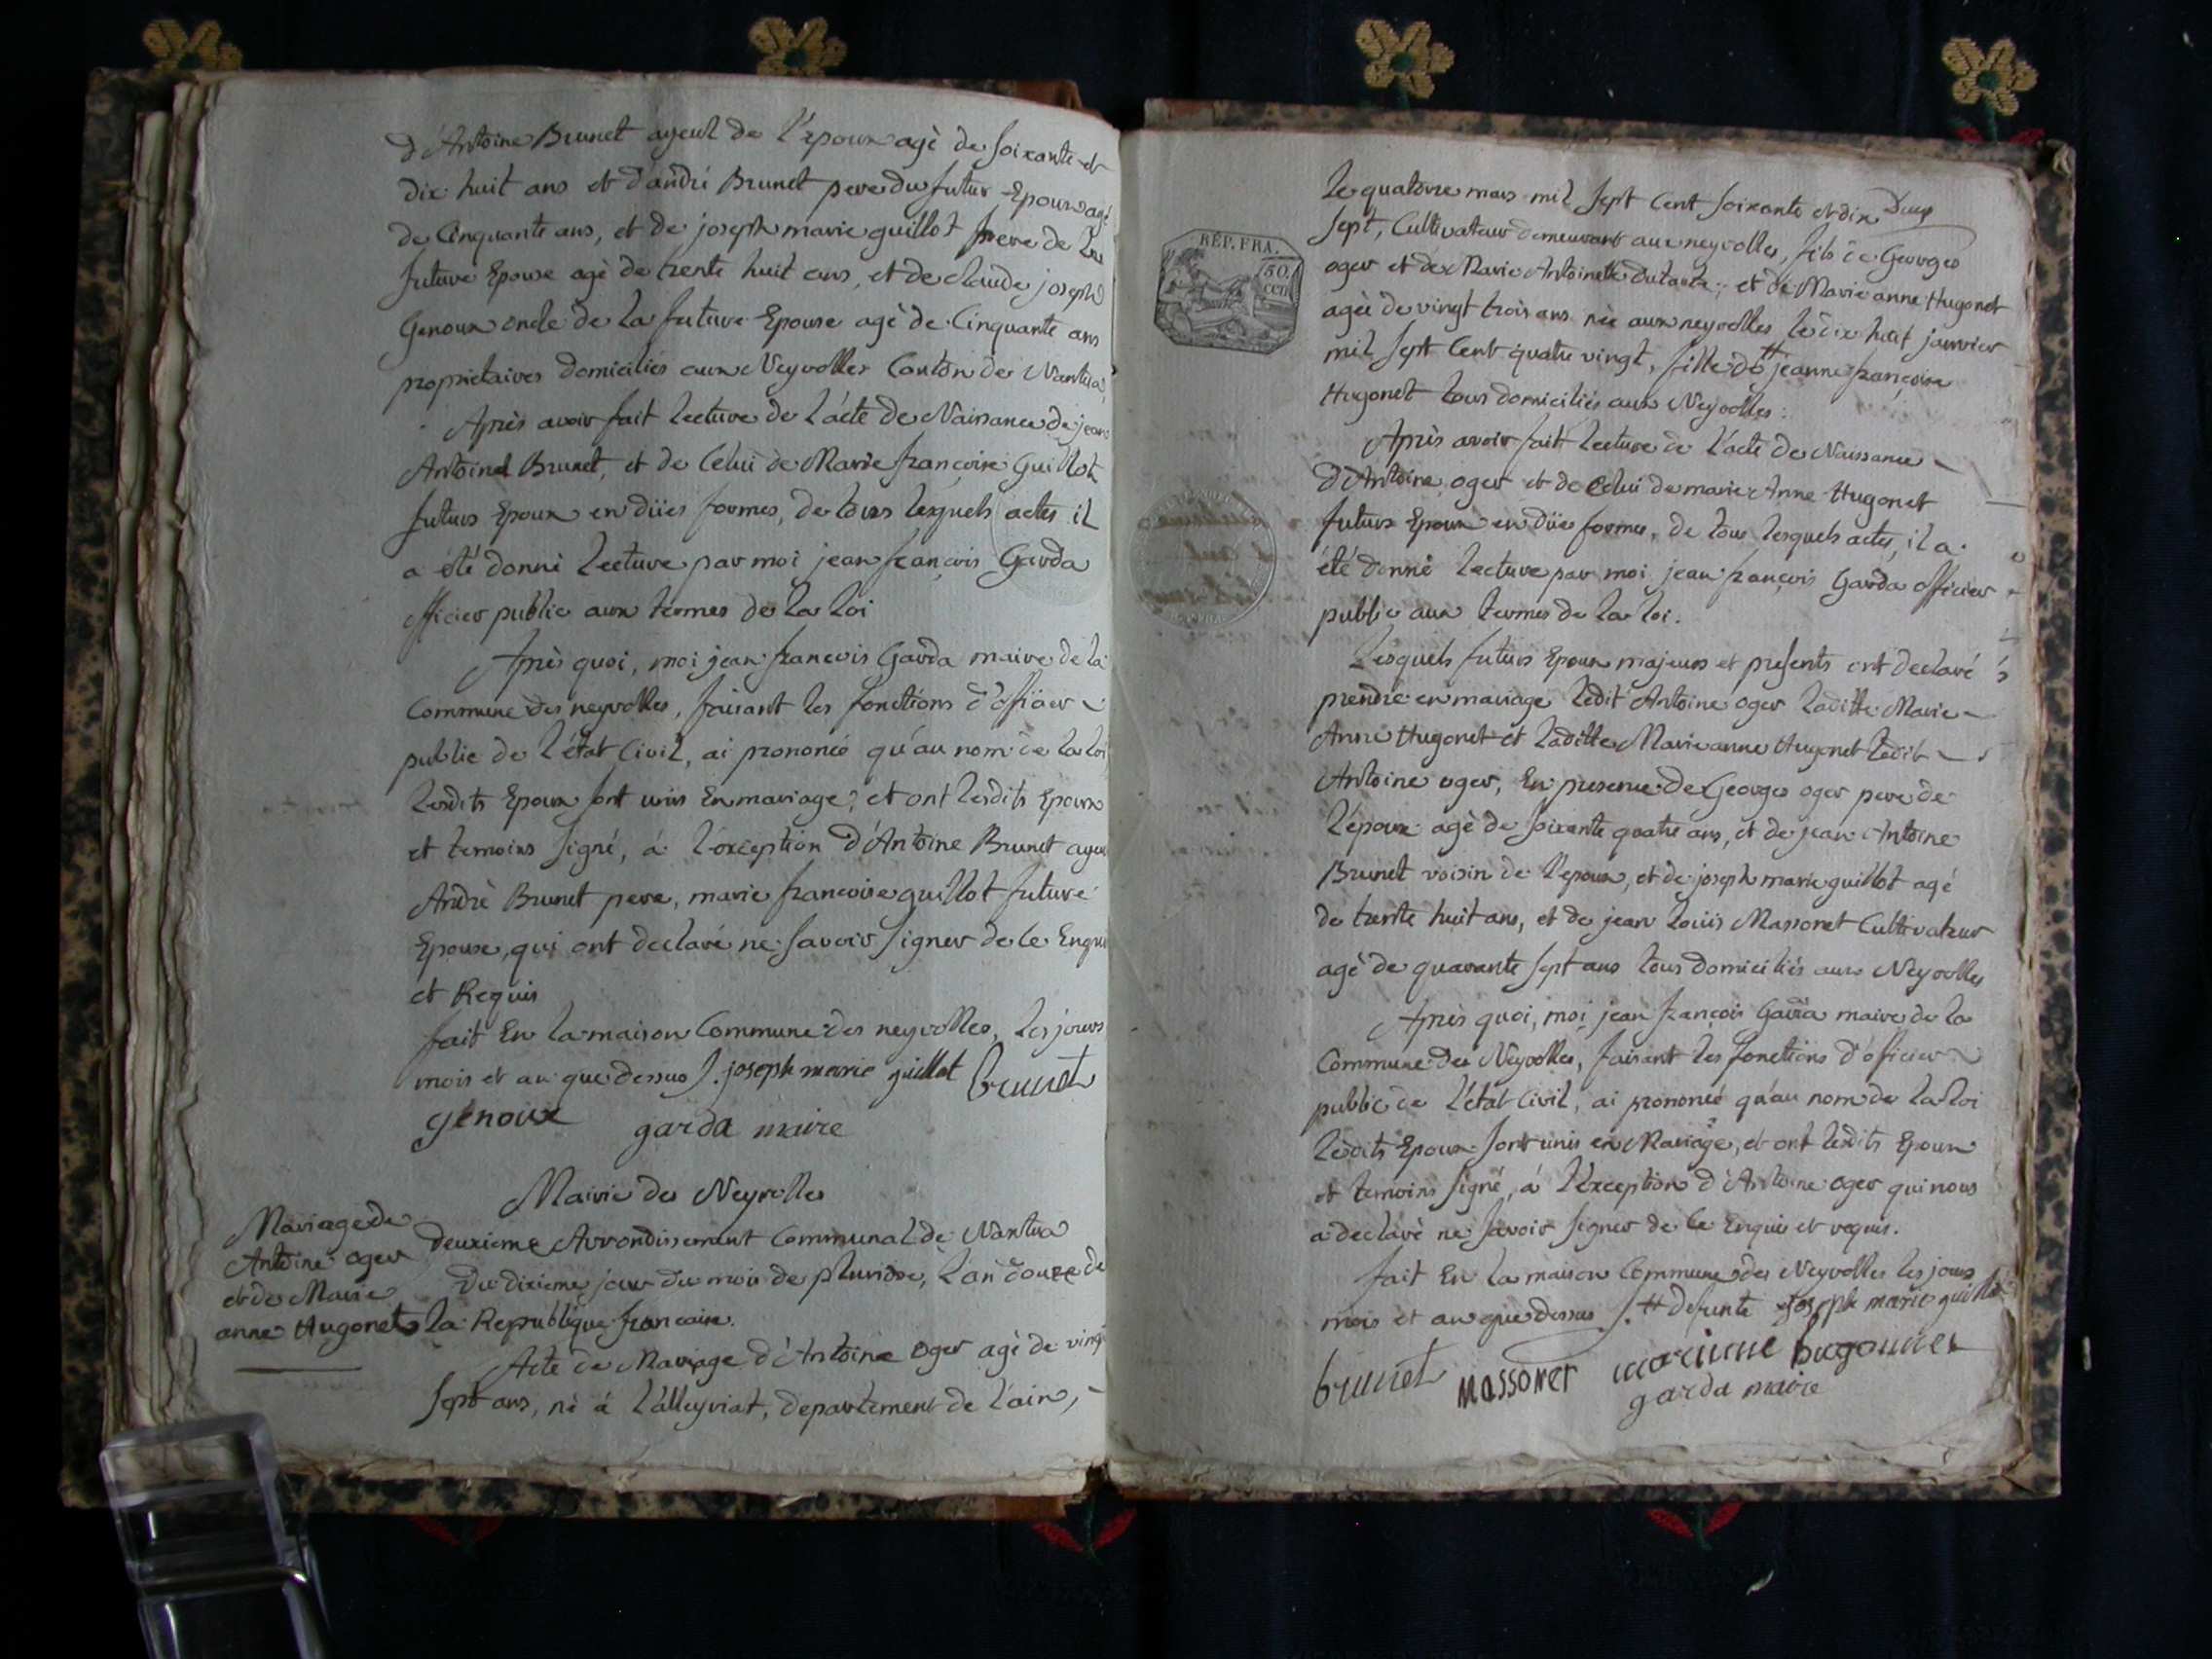 d'Antoine Brunet ayeul de l'epoux agè de soixante et
dix huit ans et d'andré Brunet pere du futur Epoux agé
de Cinquante ans, et de joseph marie guillot frere de la
future Epouse agè de trente huit ans, et de claude joseph
Genoux oncle de la future Epouse agè de Cinquante ans
proprietaires domiciliés aux Neyrolles Canton de Nantua
Après avoir fait lecture de l'acte de Naissance de jean
Antoine Brunet, et de Celui de Marie françoise Guillot
futurs Epoux en düës formes, de tous lesquels actes il
a été donné lecture par moi jean françois Garda
officier public aux termes de la loi
Après quoi, moi jean françois Garda maire de la
Commune des neyrolles, faisant les fonctions d'officier
public de l'état Civil, ai prononcé qu'au nom de la loi
lesdits Epoux sont unis En mariage; et ont lesdits Epoux
et temoins signé, à l'exception d'Antoine Brunet ayeul
André Brunet pere, marie francoise guillot future
Epouse, qui ont declaré ne savoir signer de ce Enquis
et Requis
fait En la maison Commune des neyrolles, les jours
mois et an que dessus J. joseph marie guillot brunet
genoux garda maire
Mairie des Neyrolles
Mariage de
Antoine oger
et de Marie
anne Hugonet
Deuxieme Arrondissement Communal de Nantua
Du dixieme jour du mois de pluviose, l'an douze de
la Republique francaise.
Acte de Mariage d'Antoine oger agè de vingt
sept ans, né à l'alleyriat, departement de l'ain,
RÉP. FRA.
50.
CEN
le quatorze mars mil sept Cent soixante et dix
sept, Cultivateur demeurant aux neyrolles, fils de Georges
oger et de Marie Antoinette ; et de Marie anne Hugonet
agèe de vingt trois ans née aux neyrolles le dix huit janvier
mil sept Cent quatre vingt, fille de # jeanne françoise
Hugonet tous domiciliés aux Neyrolles.
Après avoir fait lecture de l'acte de Naissance
d'Antoine oger et de Celui de marie Anne Hugonet
futurs Epoux en düe forme, de tous lesquels actes, il a
été donné lecture par moi jean françois Garda officier
public aux termes de la loi.
Lesquels futurs Epoux majeurs et presents ont declaré
prendre en mariage ledit Antoine oger laditte Marie
Anne Hugonet et laditte Marie anne Hugonet ledit
Antoine oger, En presence de Georges oger pere de
l'epoux agé de soixante quatre ans, et de jean Antoine
Brunet voisin de l'epoux, et de joseph marie guillot agé
de trente huit ans, et de jean loüis Massonet Cultivateur
agé de quarante sept ans tous domiciliés aux Neyrolles
Après quoi, moi jean françois Garda maire de la
Commune des Neyrolles, faisant les fonctions d'officier
public de l'état Civil, ai prononcé qu'au nom de la loi
lesdits Epoux sont unis en Mariage, et ont lesdits Epoux
et temoins signé, à l'exception d'Antoine oger qui nous
a declaré ne savoir signer de ce Enquis et requis.
fait En la maison Commune des Neyrolles les jours
mois et an que dessus J. # defunte joseph marie guillot
brunet massonet marianne hugonnet
garda maire